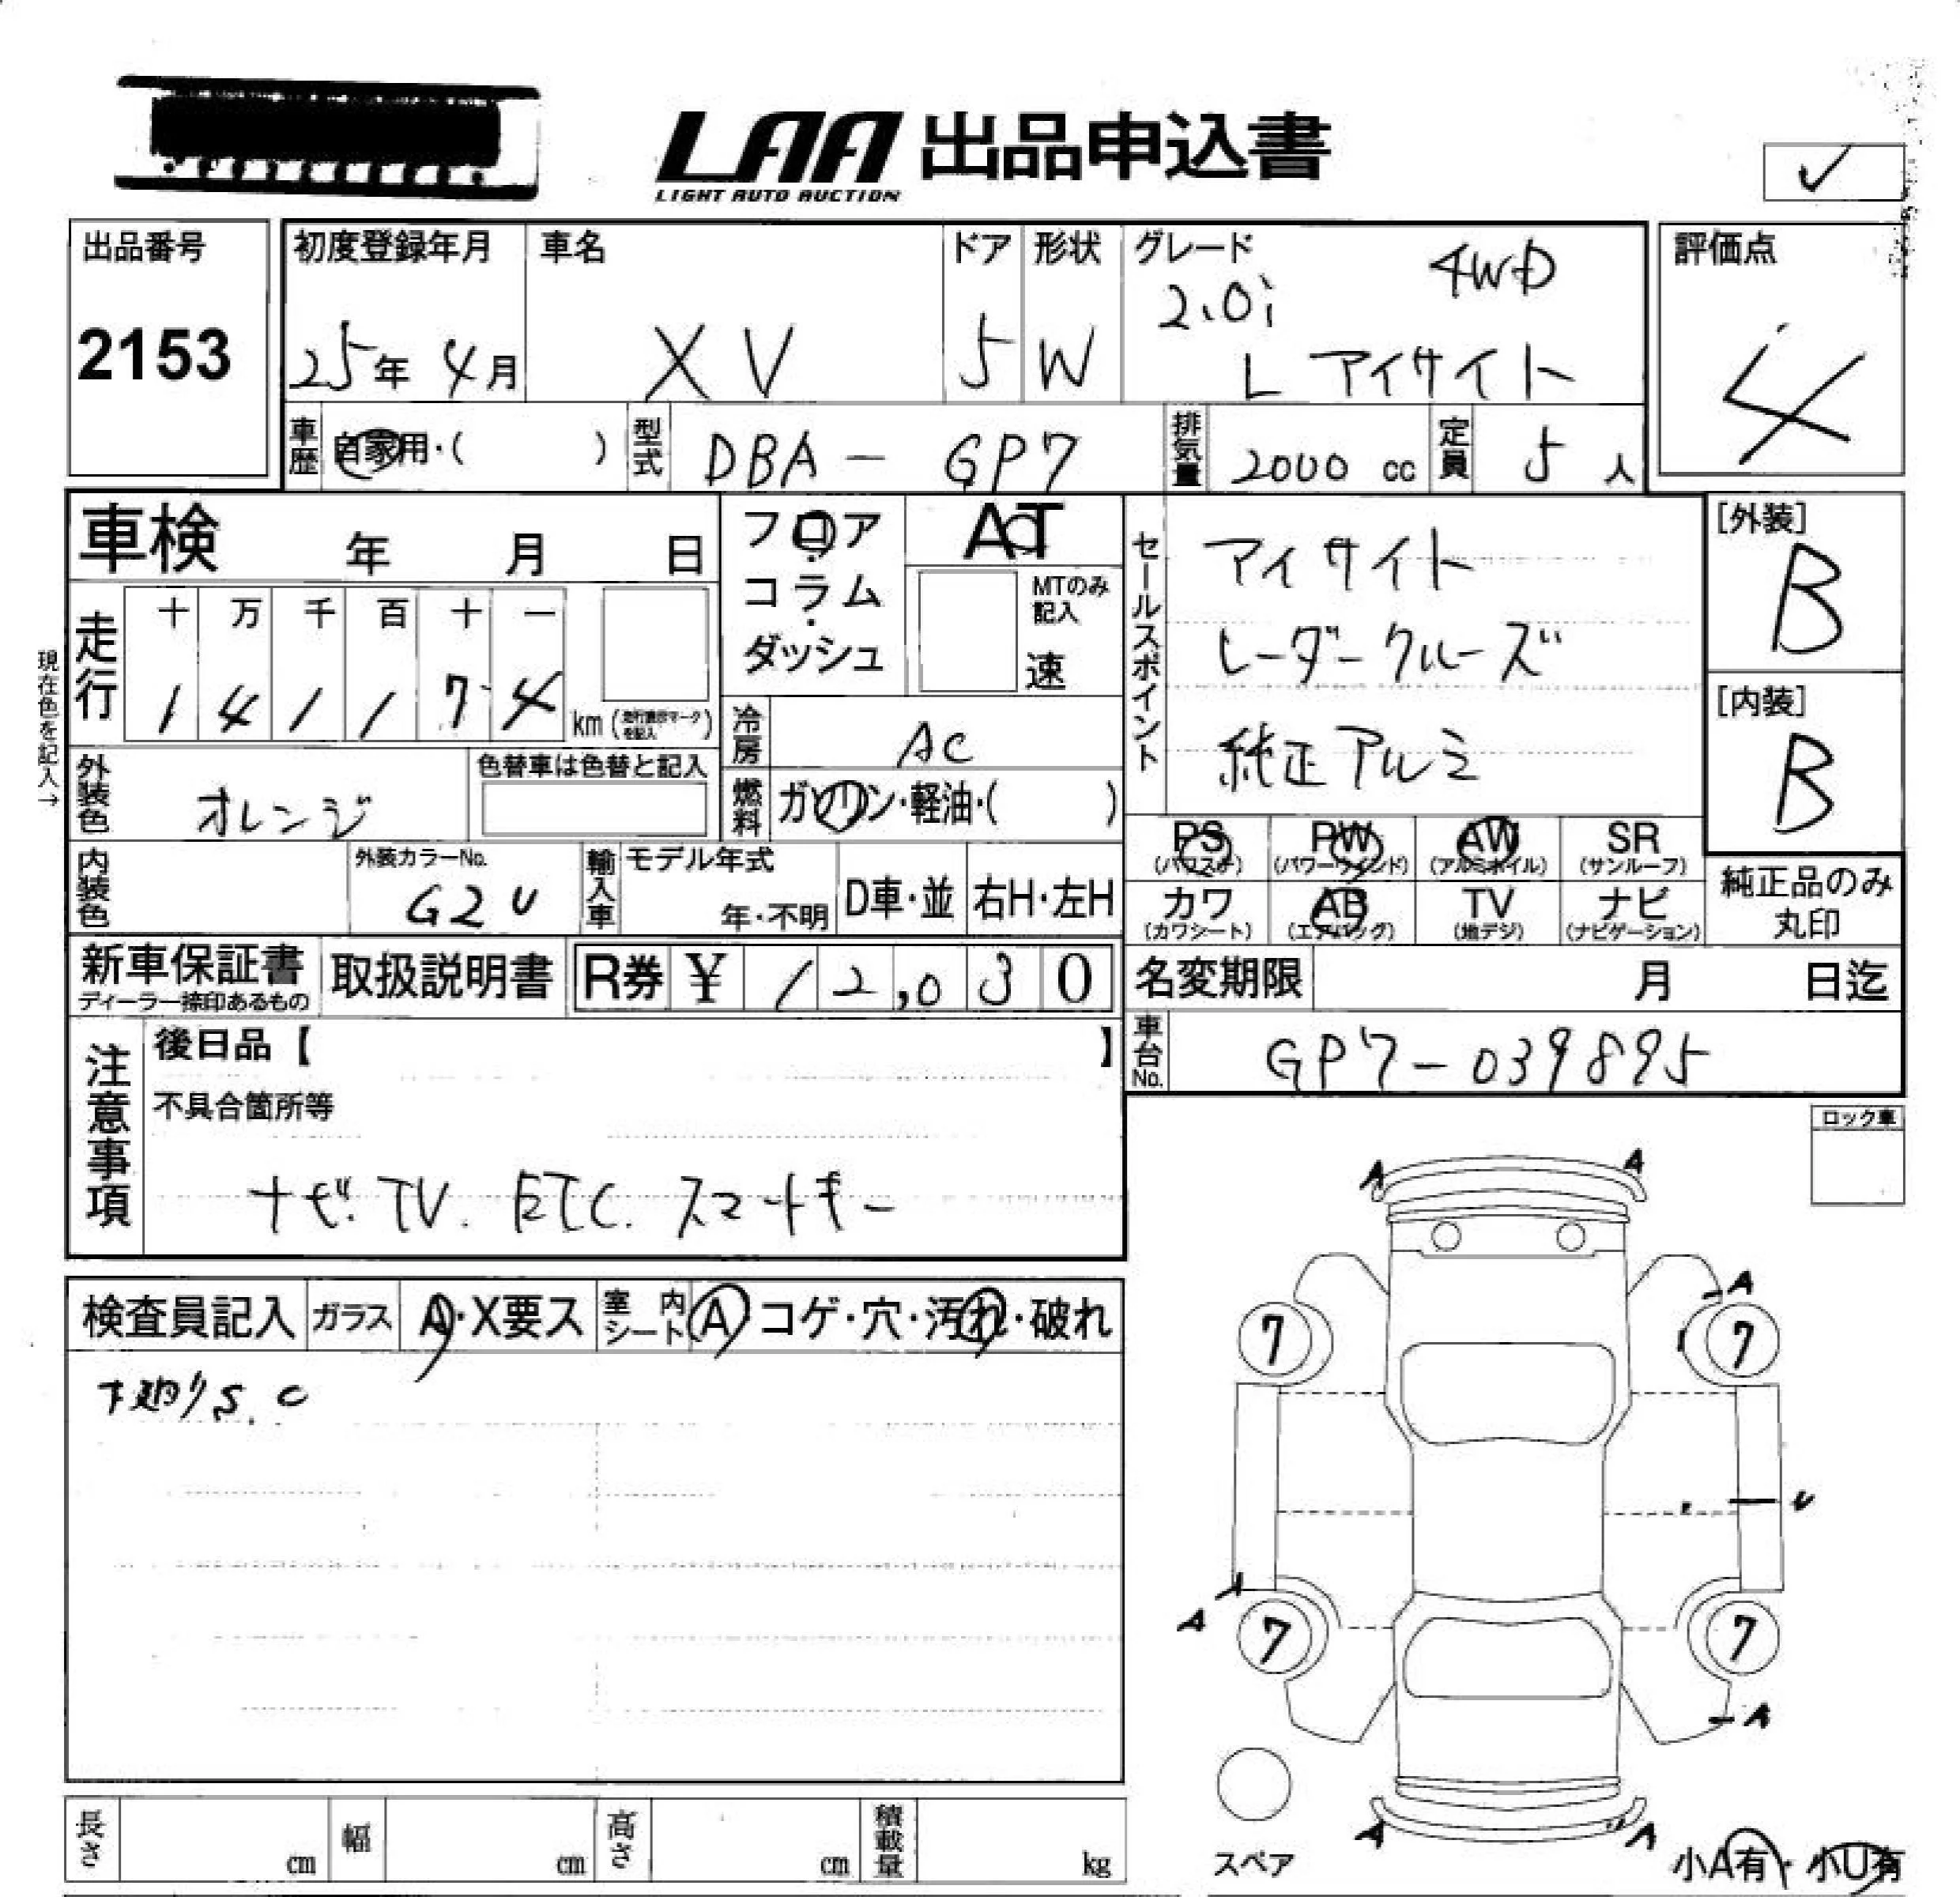 LAA 出品申込書
LIGHT AUTO AUCTION
✓
出品番号
2153
初度登録年月
25年 4月
車名
XV
ドア
5
形状
W
グレード
2.0i 4WD
L アイサイト
評価点
4
車歴
自家用・( )
型式
DBA - GP7
排気量
2000 cc
定員
5 人
車検 年 月 日
フロア・
コラム・
ダッシュ
AT
MTのみ記入
速
セールスポイント
アイサイト
レーダークルーズ
純正アルミ
[外装]
B
[内装]
B
現在色を記入→
走行
十 万 千 百 十 一
1 4 1 1 7 4
km (走行表示マークを記入)
冷房
AC
外装色
オレンジ
色替車は色替と記入
燃料
ガソリン・軽油・( )
PS PW AW SR
(パワステ) (パワーウインド) (アルミホイル) (サンルーフ)
カワ AB TV ナビ
(カワシート) (エアバッグ) (地デジ) (ナビゲーション)
純正品のみ
丸印
内装色
外装カラーNo.
G2U
輸入車
モデル年式
年・不明
D車・並
右H・左H
新車保証書
ディーラー捺印あるもの
取扱説明書
R券 ¥ 12,030
名変期限 月 日迄
車台No.
GP7-039895
注意事項
後日品【 】
不具合箇所等
ナビ. TV. ETC. スマートキー
ロック車
検査員記入
ガラス A・X要ス
室内シート A コゲ・穴・汚れ・破れ
下廻りS. C
A A
A
7 7
U
A
A
7 7
A
A A
スペア
小A有・小U有
長さ cm
幅 cm
高さ cm
積載量 kg